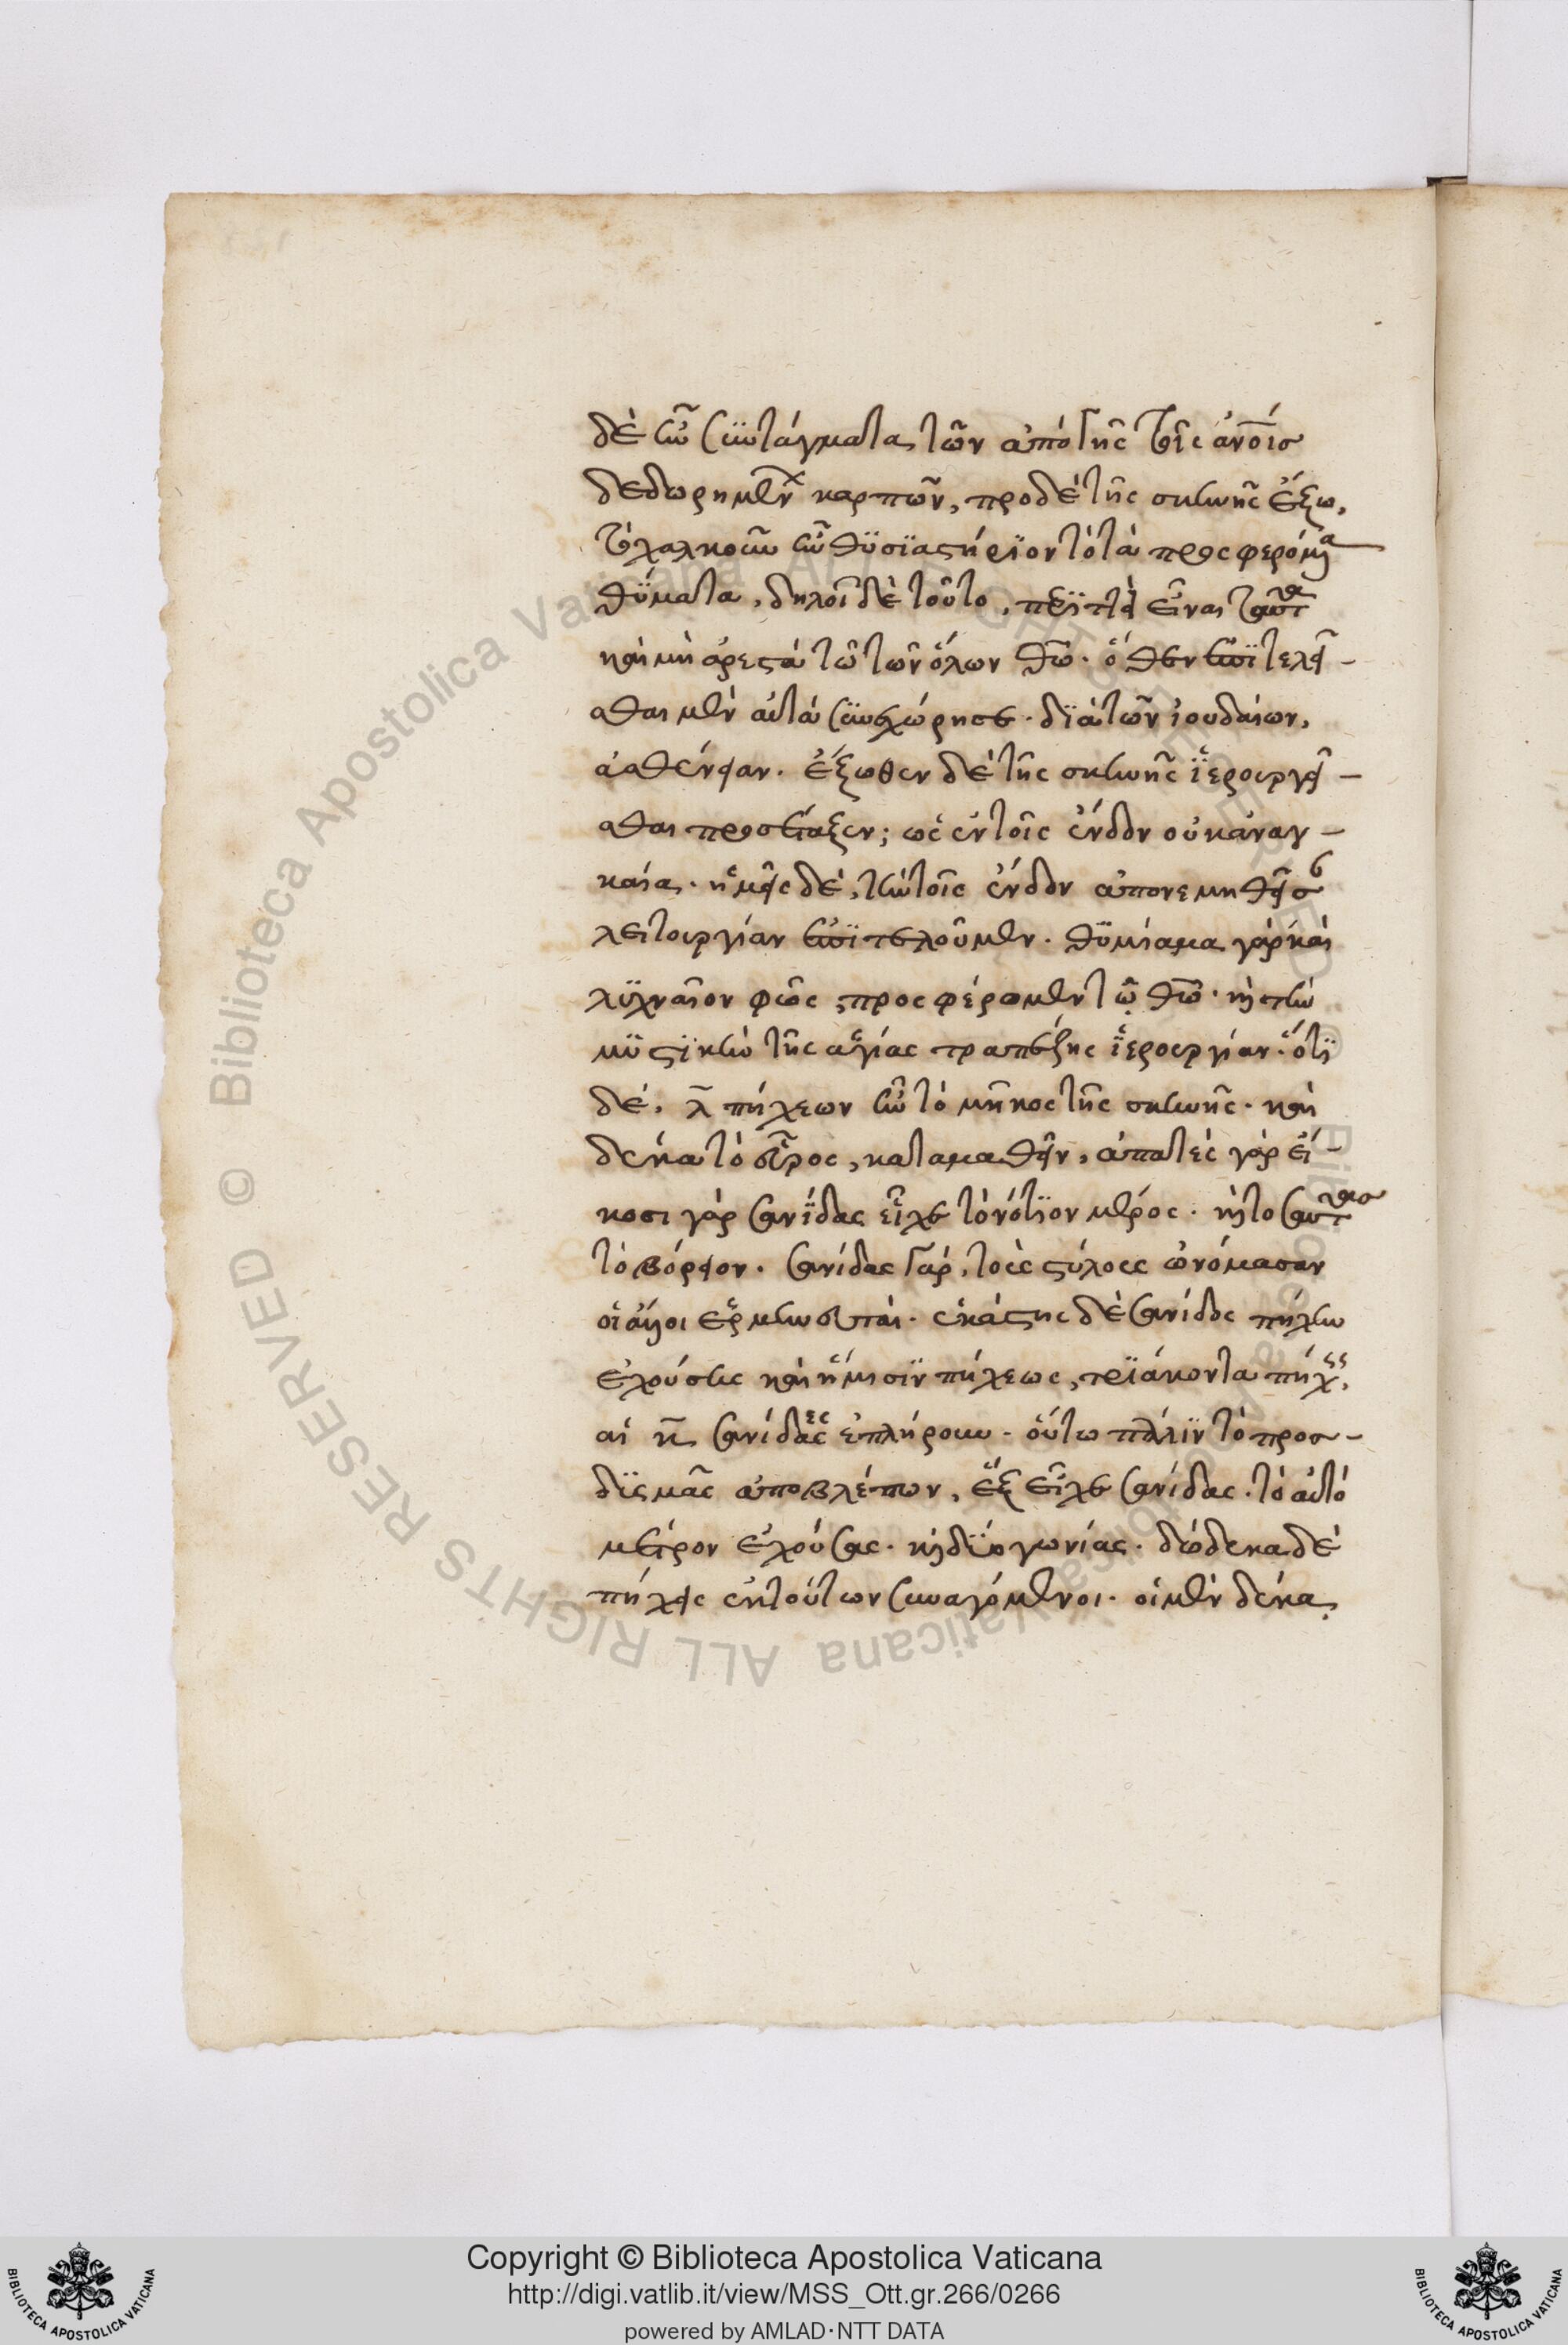 δὲ ἦν συντάγματα, τῶν ἀπὸ γῆς τοῖς ἀνοις
δεδωρημένων καρπῶν, προ δὲ τῆς σκηνῆς ἔξω,
τὸ χαλκοῦν ἦν θϋσϊαστήρϊον τὸ τὰ προσφερόμενα
θΰματα, δηλοῖ δὲ τοῦτο, περϊττὰ εἶναι ταῦτα
καὶ μὴ ἀρεστὰ τῶ τῶν ὅλων θω· ὅθεν ἐπϊτελεῖ-
σθαι μὲν αὐτὰ συνεχώρησε· δϊὰ τῶν ἰουδαίων,
ἀσθένειαν. ἔξωθεν δὲ τῆς σκηνῆς ἱερουργεῖ-
σθαι προσέταξεν; ὡς ἐν τοῖς ἔνδον οὐκ ἀναγ-
καία. ἡμεῖς δὲ, τὴν τοῖς ἔνδον ἀπονεμηθεῖσαν
λειτουργίαν ἐπϊτελοῦμεν. θϋμίαμα γὰρ καὶ
λϋχναῖον φῶς, προσφέρομεν τῶ θω· καὶ τὴν
μϋστϊκὴν τῆς ἁγίας τραπέζης ἱερουργίαν. ὅτϊ
δέ, λ πήχεων ἦν τὸ μῆκος τῆς σκηνῆς. καὶ
δέκα τὸ εὖρος, καταμαθεῖν, ἀπατὲς γὰρ εἴ-
κοσι γὰρ σανίδας εἶχε τὸ νότϊον μέρος. καὶ τοσαύτας
τὸ βόρειον. σανίδας γάρ, τοὺς στύλους ὠνόμασαν
οἱ ἄλλοι ἑρμηνευταί. ἑκάστης δὲ σανίδος πῆχυν
ἐχούσης καὶ ἥμισϊν πήχεως, τρϊάκοντα πήχεις,
αἱ κ σανίδες ἐπλήρουν. οὕτω πάλϊν τὸ προσ-
δϊσμὰς ἀποβλέπον, ἓξ εἶχε σανίδας. τὸ αὐτὸ
μέτρον ἐχούσας. καὶ δϊο γωνίας. δώδεκα δὲ
πήχεις ἐκ τούτων συναγόμενοι. οἱ μὲν δέκα,
Copyright © Biblioteca Apostolica Vaticana
http://digi.vatlib.it/view/MSS_Ott.gr.266/0266
powered by AMLAD·NTT DATA